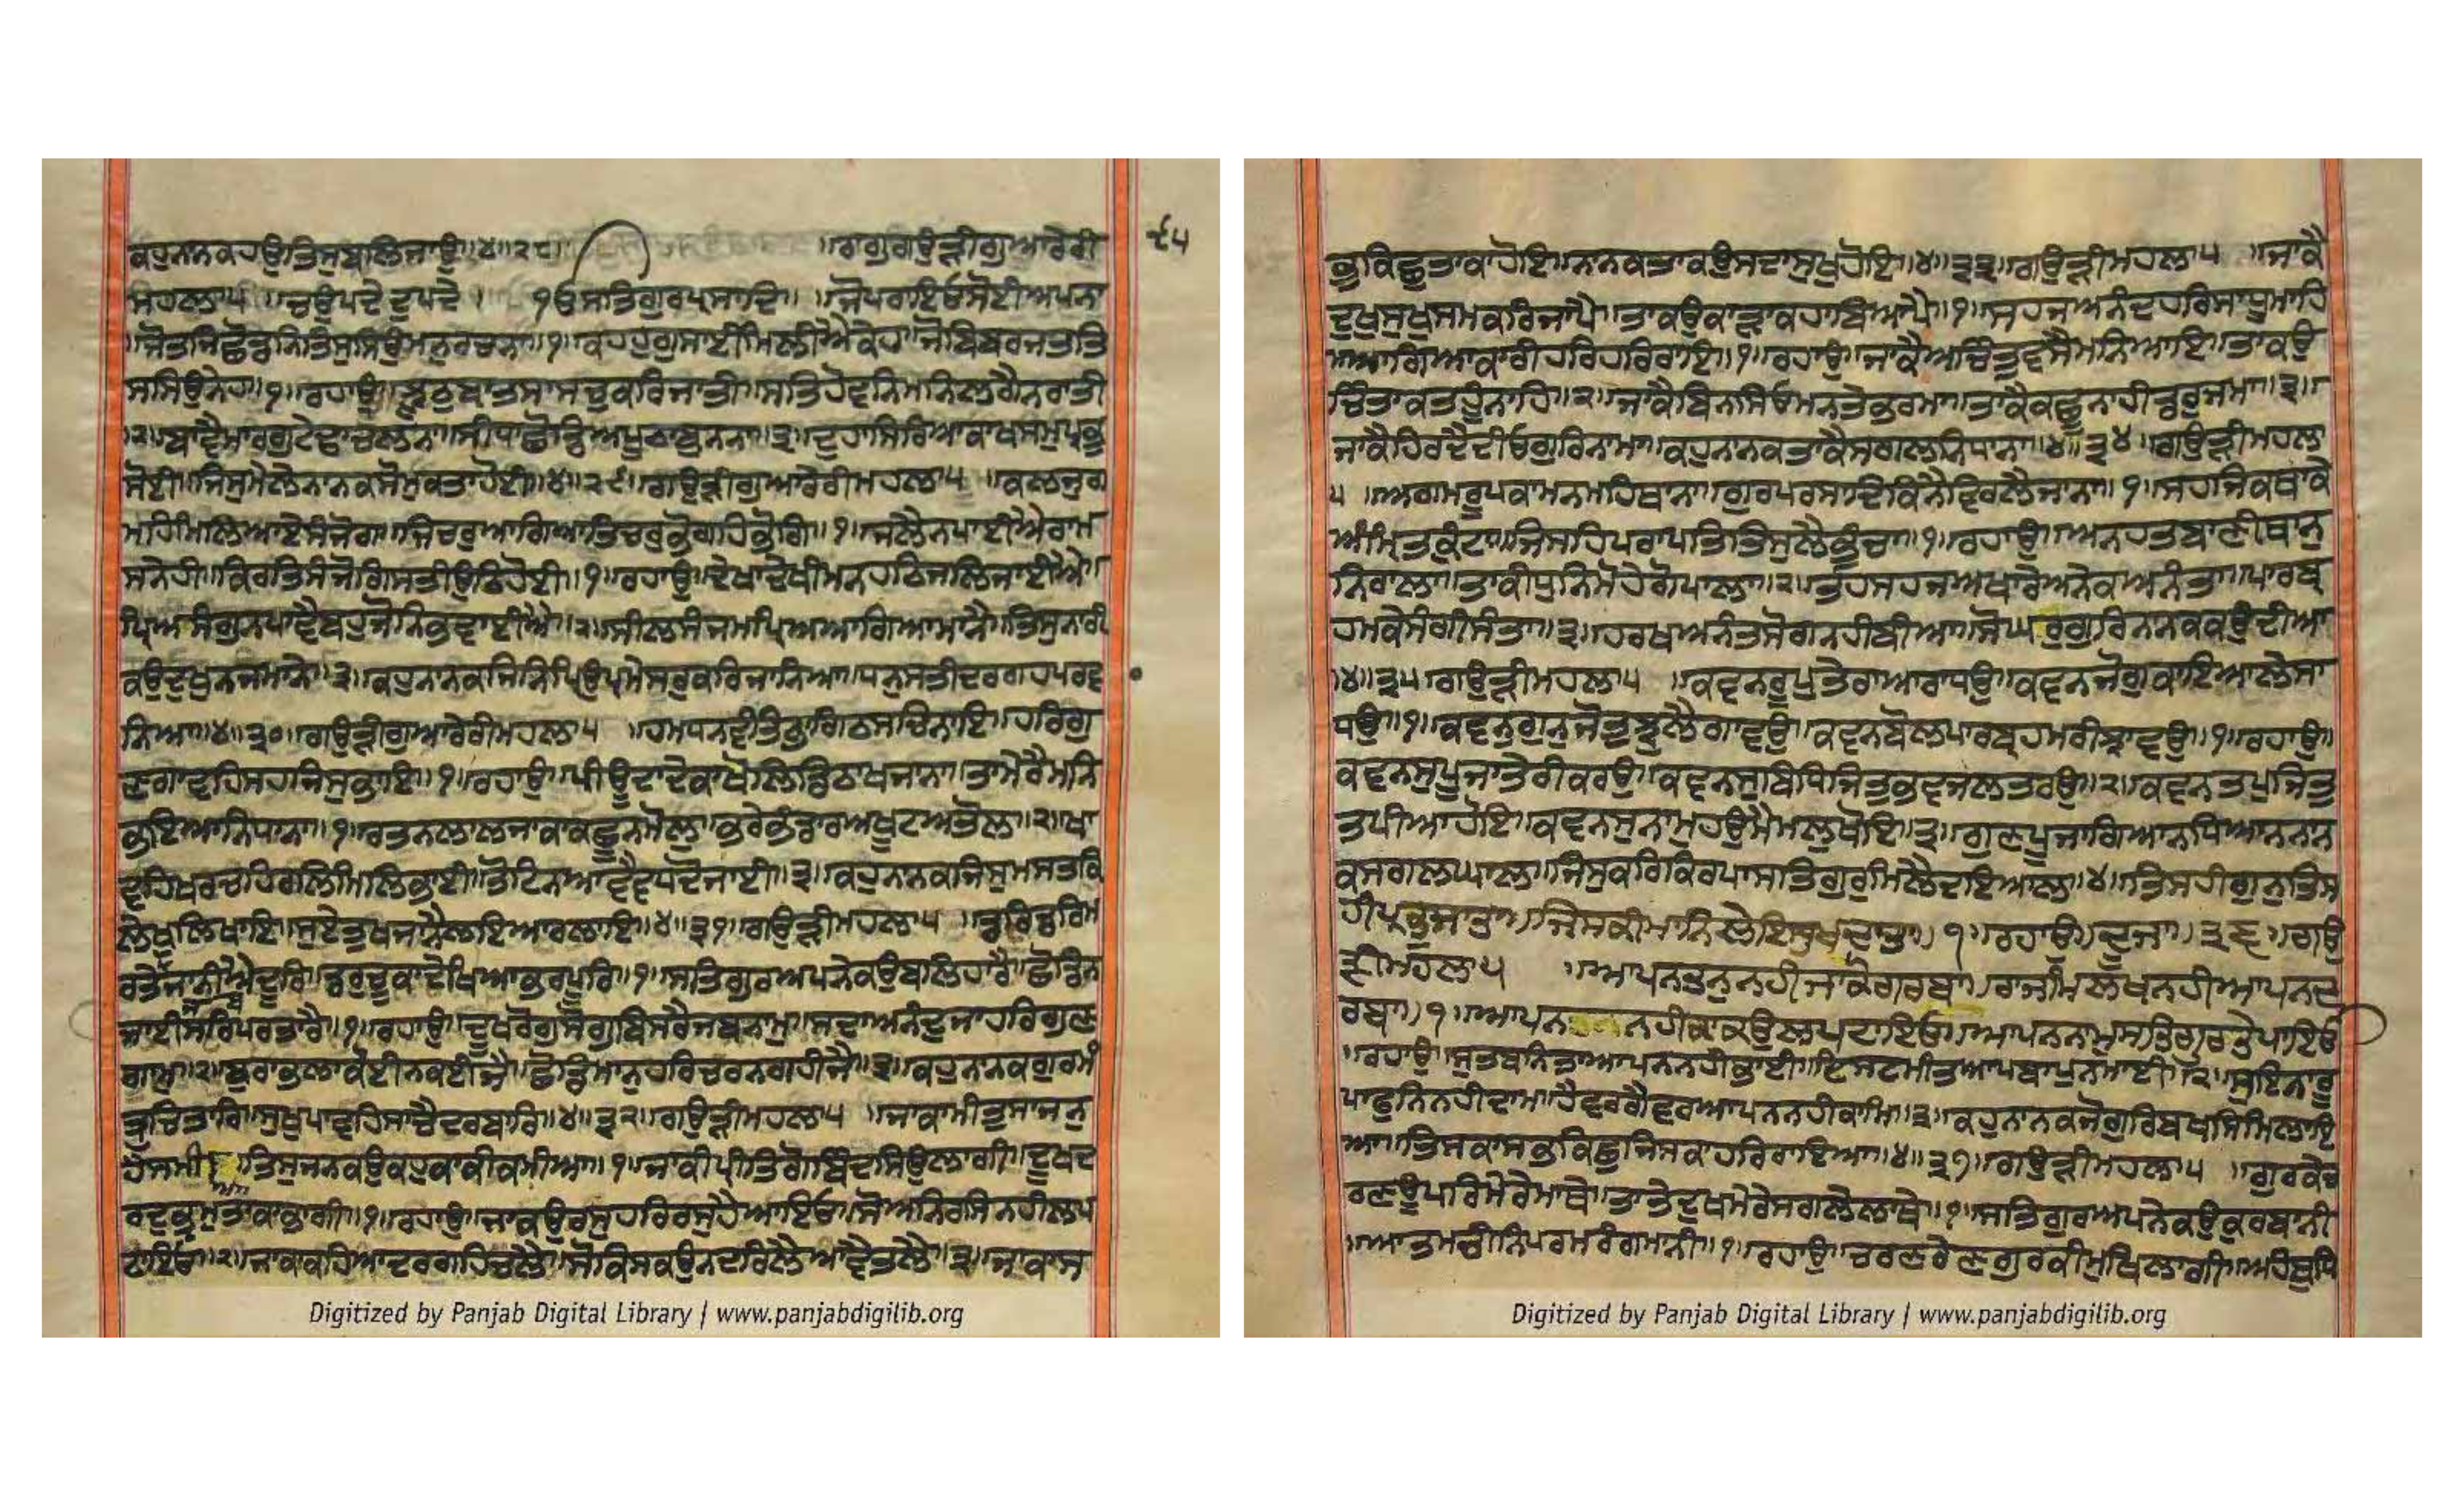 ਕਹੁਨਾਨਕਹਉਤਿਸੁਬਲਿਜਾਉ॥੪॥੨੮॥ ॥ਰਾਗੁਗਉੜੀਗੁਆਰੇਰੀ
੯੫
ਮਹਲਾ੫ ॥ਚਉਪਦੇਦੁਪਦੇ। ੴਸਤਿਗੁਰਪ੍ਰਸਾਦਿ॥ ॥ਜੋਪਰਾਇਓਸੋਈਅਪਨਾ
॥ਜੋਤਜਿਛੋਡਨਿਤਿਸੁਸਿਉਮਨੁਰਚਨਾ॥੧॥ਕਹਹੁਗੁਸਾਈਮਿਲੀਐਕੇਹ॥ਜੋਬਿਬਰਜਤਤਿ
ਸਸਿਉਨੇਹ॥੧॥ਰਹਾਉ॥ਝੂਠੁਬਾਤਸਾਸਚੁਕਰਿਜਾਤੀ॥ਸਤਿਹੋਵਨਿਮਨਿਲਗੈਨਰਾਤੀ
॥੨॥ਬਾਵੈਮਾਰਗੁਟੇਢਾਚਲਨਾ॥ਸੀਧਾਛੋਡਿਅਪੂਠਾਬੁਨਨਾ॥੩॥ਦੁਹਾਸਿਰਿਆਕਾਖਸਮੁਪ੍ਰਭੁ
ਸੋਈ॥ਜਿਸੁਮੇਲੇਨਾਨਕਸੋਮੁਕਤਾਹੋਈ॥੪॥੨੯॥ਗਉੜੀਗੁਆਰੇਰੀਮਹਲਾ੫ ॥ਕਲਜੁਗ
ਮਹਿਮਿਲਿਆਏਸੰਜੋਗ॥ਜਿਚਰੁਆਗਿਆਤਿਚਰੁਭੋਗਹਿਭੋਗ॥੧॥ਜਲੈਨਪਾਈਐਰਾਮ
ਸਨੇਹੀ॥ਕਿਰਤਿਸੰਜੋਗਿਸਤੀਉਠਿਹੋਈ॥੧॥ਰਹਾਉ॥ਦੇਖਾਦੇਖੀਮਨਹਠਿਜਲਿਜਾਈਐ॥
ਪ੍ਰਿਅਸੰਗੁਨਪਾਵੈਬਹੁਜੋਨਿਭਵਾਈਐ॥੨॥ਸੀਲਸੰਜਮਪ੍ਰਿਅਆਗਿਆਮਾਨੈ॥ਤਿਸੁਨਾਰੀ
ਕਉਦੁਖੁਨਜਮਾਨੈ॥੩॥ਕਹੁਨਾਨਕਜਿਨਿਪ੍ਰਿਉਪ੍ਰਮੇਸਰੁਕਰਿਜਾਨਿਆ॥ਧਨੁਸਤੀਦਰਗਹਪਰਵਾ
ਨਿਆ॥੪॥੩੦॥ਗਉੜੀਗੁਆਰੇਰੀਮਹਲਾ੫ ॥ਹਮਧਨਵੰਤਿਭਾਗਿਠਸਚਿਨਾਇ॥ਹਰਿਗੁ
ਣਗਾਵਹਿਸਹਜਿਸੁਭਾਇ॥੧॥ਰਹਾਉ॥ਪੀਊਦਾਦੇਕਾਖੋਲਿਡਿਠਾਖਜਾਨਾ॥ਤਾਮੇਰੈਮਨਿ
ਭਇਆਨਿਧਾਨਾ॥੧॥ਰਤਨਲਾਲਜਾਕਾਕਛੂਨਮੋਲੁ॥ਭਰੇਭੰਡਾਰਅਖੂਟਅਤੋਲ॥੨॥ਖਾ
ਵਹਿਖਰਚਹਿਰਲਿਮਿਲਿਭਾਈ॥ਤੋਟਿਨਆਵੈਵਧਦੋਜਾਈ॥੩॥ਕਹੁਨਾਨਕਜਿਸੁਮਸਤਕਿ
ਲੇਖੁਲਿਖਾਇ॥ਸੁਏਤੁਖਜਾਨੈਲਇਆਰਲਾਇ॥੪॥੩੧॥ਗਉੜੀਮਹਲਾ੫ ॥ਡਰਿਡਰਿਮ
ਰਤੇਜਾਨੀਐਦੂਰਿ॥ਡਰੁਚੂਕਾਦੇਖਿਆਭਰਪੂਰਿ॥੧॥ਸਤਿਗੁਰਅਪਨੇਕਉਬਲਿਹਾਰੈ॥ਛੋਡਿਨ
ਜਾਈਸਰਪਰਤਾਰੈ॥੧॥ਰਹਾਉ॥ਦੂਖੁਰੋਗੁਸੋਗੁਬਿਸਰੈਜਬਨਾਮੁ॥ਸਦਾਅਨੰਦੁਜਾਹਰਿਗੁਣ
ਗਾਮੁ॥੨॥ਬੁਰਾਭਲਾਕੋਈਨਕਹੀਜੈ॥ਛੋਡਿਮਾਨੁਹਰਿਚਰਨਗਹੀਜੈ॥੩॥ਕਹੁਨਾਨਕਗੁਰਮੰ
ਤ੍ਰੁਚਿਤਾਰਿ॥ਸੁਖੁਪਾਵਹਿਸਾਚੈਦਰਬਾਰਿ॥੪॥੩੨॥ਗਉੜੀਮਹਲਾ੫ ॥ਜਾਕਾਮੀਤੁਸਾਜਨੁ
ਹੈਸਮੀਆ॥ਤਿਸੁਜਨਕਉਕਹੁਕਾਕੀਕਮੀਆ॥੧॥ਜਾਕੀਪ੍ਰੀਤਿਗੋਬਿੰਦਸਿਉਲਾਗੀ॥ਦੂਖੁਦ
ਰਦੁਭ੍ਰਮੁਤਾਕਾਭਾਗੀ॥੧॥ਰਹਾਉ॥ਜਾਕਉਰਸੁਹਰਿਰਸੁਹੈਆਇਓ॥ਸੋਅਨਰਸਨਾਹੀਲਪ
ਟਾਇਓ॥੨॥ਜਾਕਾਕਹਿਆਦਰਗਹਚਲੈ॥ਸੋਕਿਸਕਉਨਦਰਿਲੈਆਵੈਤਲੈ॥੩॥ਜਾਕਾਸ
Digitized by Panjab Digital Library | www.panjabdigilib.org
ਭੁਕਿਛੁਤਾਕਾਹੋਇ॥ਨਾਨਕਤਾਕਉਸਦਾਸੁਖੁਹੋਇ॥੪॥੩੩॥ਗਉੜੀਮਹਲਾ੫ ॥ਜਾਕੈ
ਦੁਖੁਸੁਖੁਸਮਕਰਿਜਾਪੈ॥ਤਾਕਉਕਾੜਾਕਹਾਬਿਆਪੈ॥੧॥ਸਹਜਅਨੰਦਹਰਿਸਾਧੂਮਾਹਿ
॥ਆਗਿਆਕਾਰੀਹਰਿਹਰਿਰਾਇ॥੧॥ਰਹਾਉ॥ਜਾਕੈਅਚਿੰਤੁਵਸੈਮਨਿਆਇ॥ਤਾਕਉ
ਚਿੰਤਾਕਤਹੂੰਨਾਹਿ॥੨॥ਜਾਕੈਬਿਨਸਿਓਮਨਤੇਭਰਮਾ॥ਤਾਕੈਕਛੂਨਾਹੀਡਰੁਜਮਾ॥੩॥
ਜਾਕੈਹਿਰਦੈਦੀਓਗੁਰਿਨਾਮਾ॥ਕਹੁਨਾਨਕਤਾਕੈਸਗਲਨਿਧਾਨਾ॥੪॥੩੪॥ਗਉੜੀਮਹਲਾ
੫ ॥ਅਗਮਰੂਪਕਾਮਨਮਹਿਥਾਨਾ॥ਗੁਰਪਰਸਾਦਿਕਿਨੈਵਿਰਲੈਜਾਨਾ॥੧॥ਸਹਜਿਕਥਾਕੇ
ਅੰਮ੍ਰਿਤਕੁੰਟਾ॥ਜਿਸਹਿਪਰਾਪਤਿਤਿਸੁਲੈਭੁੰਚਾ॥੧॥ਰਹਾਉ॥ਅਨਹਤਬਾਣੀਥਾਨੁ
ਨਿਰਾਲਾ॥ਤਾਕੀਧੁਨਿਮੋਹੇਗੋਪਾਲਾ॥੨॥ਤਹਸਹਜਅਖਾਰੇਅਨੇਕਅਨੰਤਾ॥ਪਾਰਬ੍ਰ
ਹਮਕੇਸੰਗੀਸੰਤਾ॥੩॥ਹਰਖਅਨੰਤਸੋਗਨਹੀਬੀਆ॥ਸੋਘਰੁਗੁਰਿਨਾਨਕਕਉਦੀਆ
॥੪॥੩੫॥ਗਉੜੀਮਹਲਾ੫ ॥ਕਵਨਰੂਪੁਤੇਰਾਆਰਾਧਉ॥ਕਵਨਜੋਗੁਕਾਇਆਲੈਸਾ
ਧਉ॥੧॥ਕਵਨੁਗੁਨੁਜੋਤੁਝੁਲੈਗਾਵਉ॥ਕਵਨਬੋਲਪਾਰਬ੍ਰਹਮਰੀਝਾਵਉ॥੧॥ਰਹਾਉ॥
ਕਵਨਸੁਪੂਜਾਤੇਰੀਕਰਉ॥ਕਵਨਸੁਬਿਧਿਜਿਤੁਭਵਜਲਤਰਉ॥੨॥ਕਵਨਤਪੁਜਿਤੁ
ਤਪੀਆਹੋਇ॥ਕਵਨਸੁਨਾਮੁਹਉਮੈਮਲੁਖੋਇ॥੩॥ਗੁਣਪੂਜਾਗਿਆਨਧਿਆਨਨਾਨ
ਕਸਗਲਘਾਲ॥ਜਿਸੁਕਰਿਕਿਰਪਾਸਤਿਗੁਰੁਮਿਲੈਦਇਆਲ॥੪॥ਤਿਸਹੀਗੁਨੁਤਿਸ
ਹੀਪ੍ਰਭੁਜਾਤਾ॥ਜਿਸਕੀਮਾਨਿਲੇਇਸੁਖਦਾਤਾ॥੧॥ਰਹਾਉਦੂਜਾ॥੩੬॥ਗਉ
ੜੀਮਹਲਾ੫ ॥ਆਪਨਤਨੁਨਹੀਜਾਕੋਗਰਬਾ॥ਰਾਜਮਿਲਖਨਹੀਆਪਨਦ
ਰਬਾ॥੧॥ਆਪਨਨਹੀਕਾਕਉਲਪਟਾਇਓ॥ਆਪਨਨਾਮੁਸਤਿਗੁਰਤੇਪਾਇਓ
॥ਰਹਾਉ॥ਸੁਤਬਨਿਤਾਆਪਨਨਹੀਭਾਈ॥ਇਸਟਮੀਤਆਪਬਾਪੁਨਮਾਈ॥੨॥ਸੁਇਨਾਰੂ
ਪਾਫੁਨਿਨਹੀਦਾਮ॥ਹੈਵਰਗੈਵਰਆਪਨਨਹੀਕਾਮ॥੩॥ਕਹੁਨਾਨਕਜੋਗੁਰਿਬਖਸਿਮਿਲਾਇ
ਆ॥ਤਿਸਕਾਸਭੁਕਿਛੁਜਿਸਕਾਹਰਿਰਾਇਆ॥੪॥੩੭॥ਗਉੜੀਮਹਲਾ੫ ॥ਗੁਰਕੇਚ
ਰਣਊਪਰਿਮੇਰੇਮਾਥੇ॥ਤਾਤੇਦੁਖਮੇਰੇਸਗਲੇਲਾਥੇ॥੧॥ਸਤਿਗੁਰਅਪਨੇਕਉਕੁਰਬਾਨੀ
॥ਆਤਮਚੀਨਿਪਰਮਰੰਗਮਾਨੀ॥੧॥ਰਹਾਉ॥ਚਰਣਰੇਣਗੁਰਕੀਮੁਖਿਲਾਗੀ॥ਅਹੰਬੁਧਿ
Digitized by Panjab Digital Library | www.panjabdigilib.org